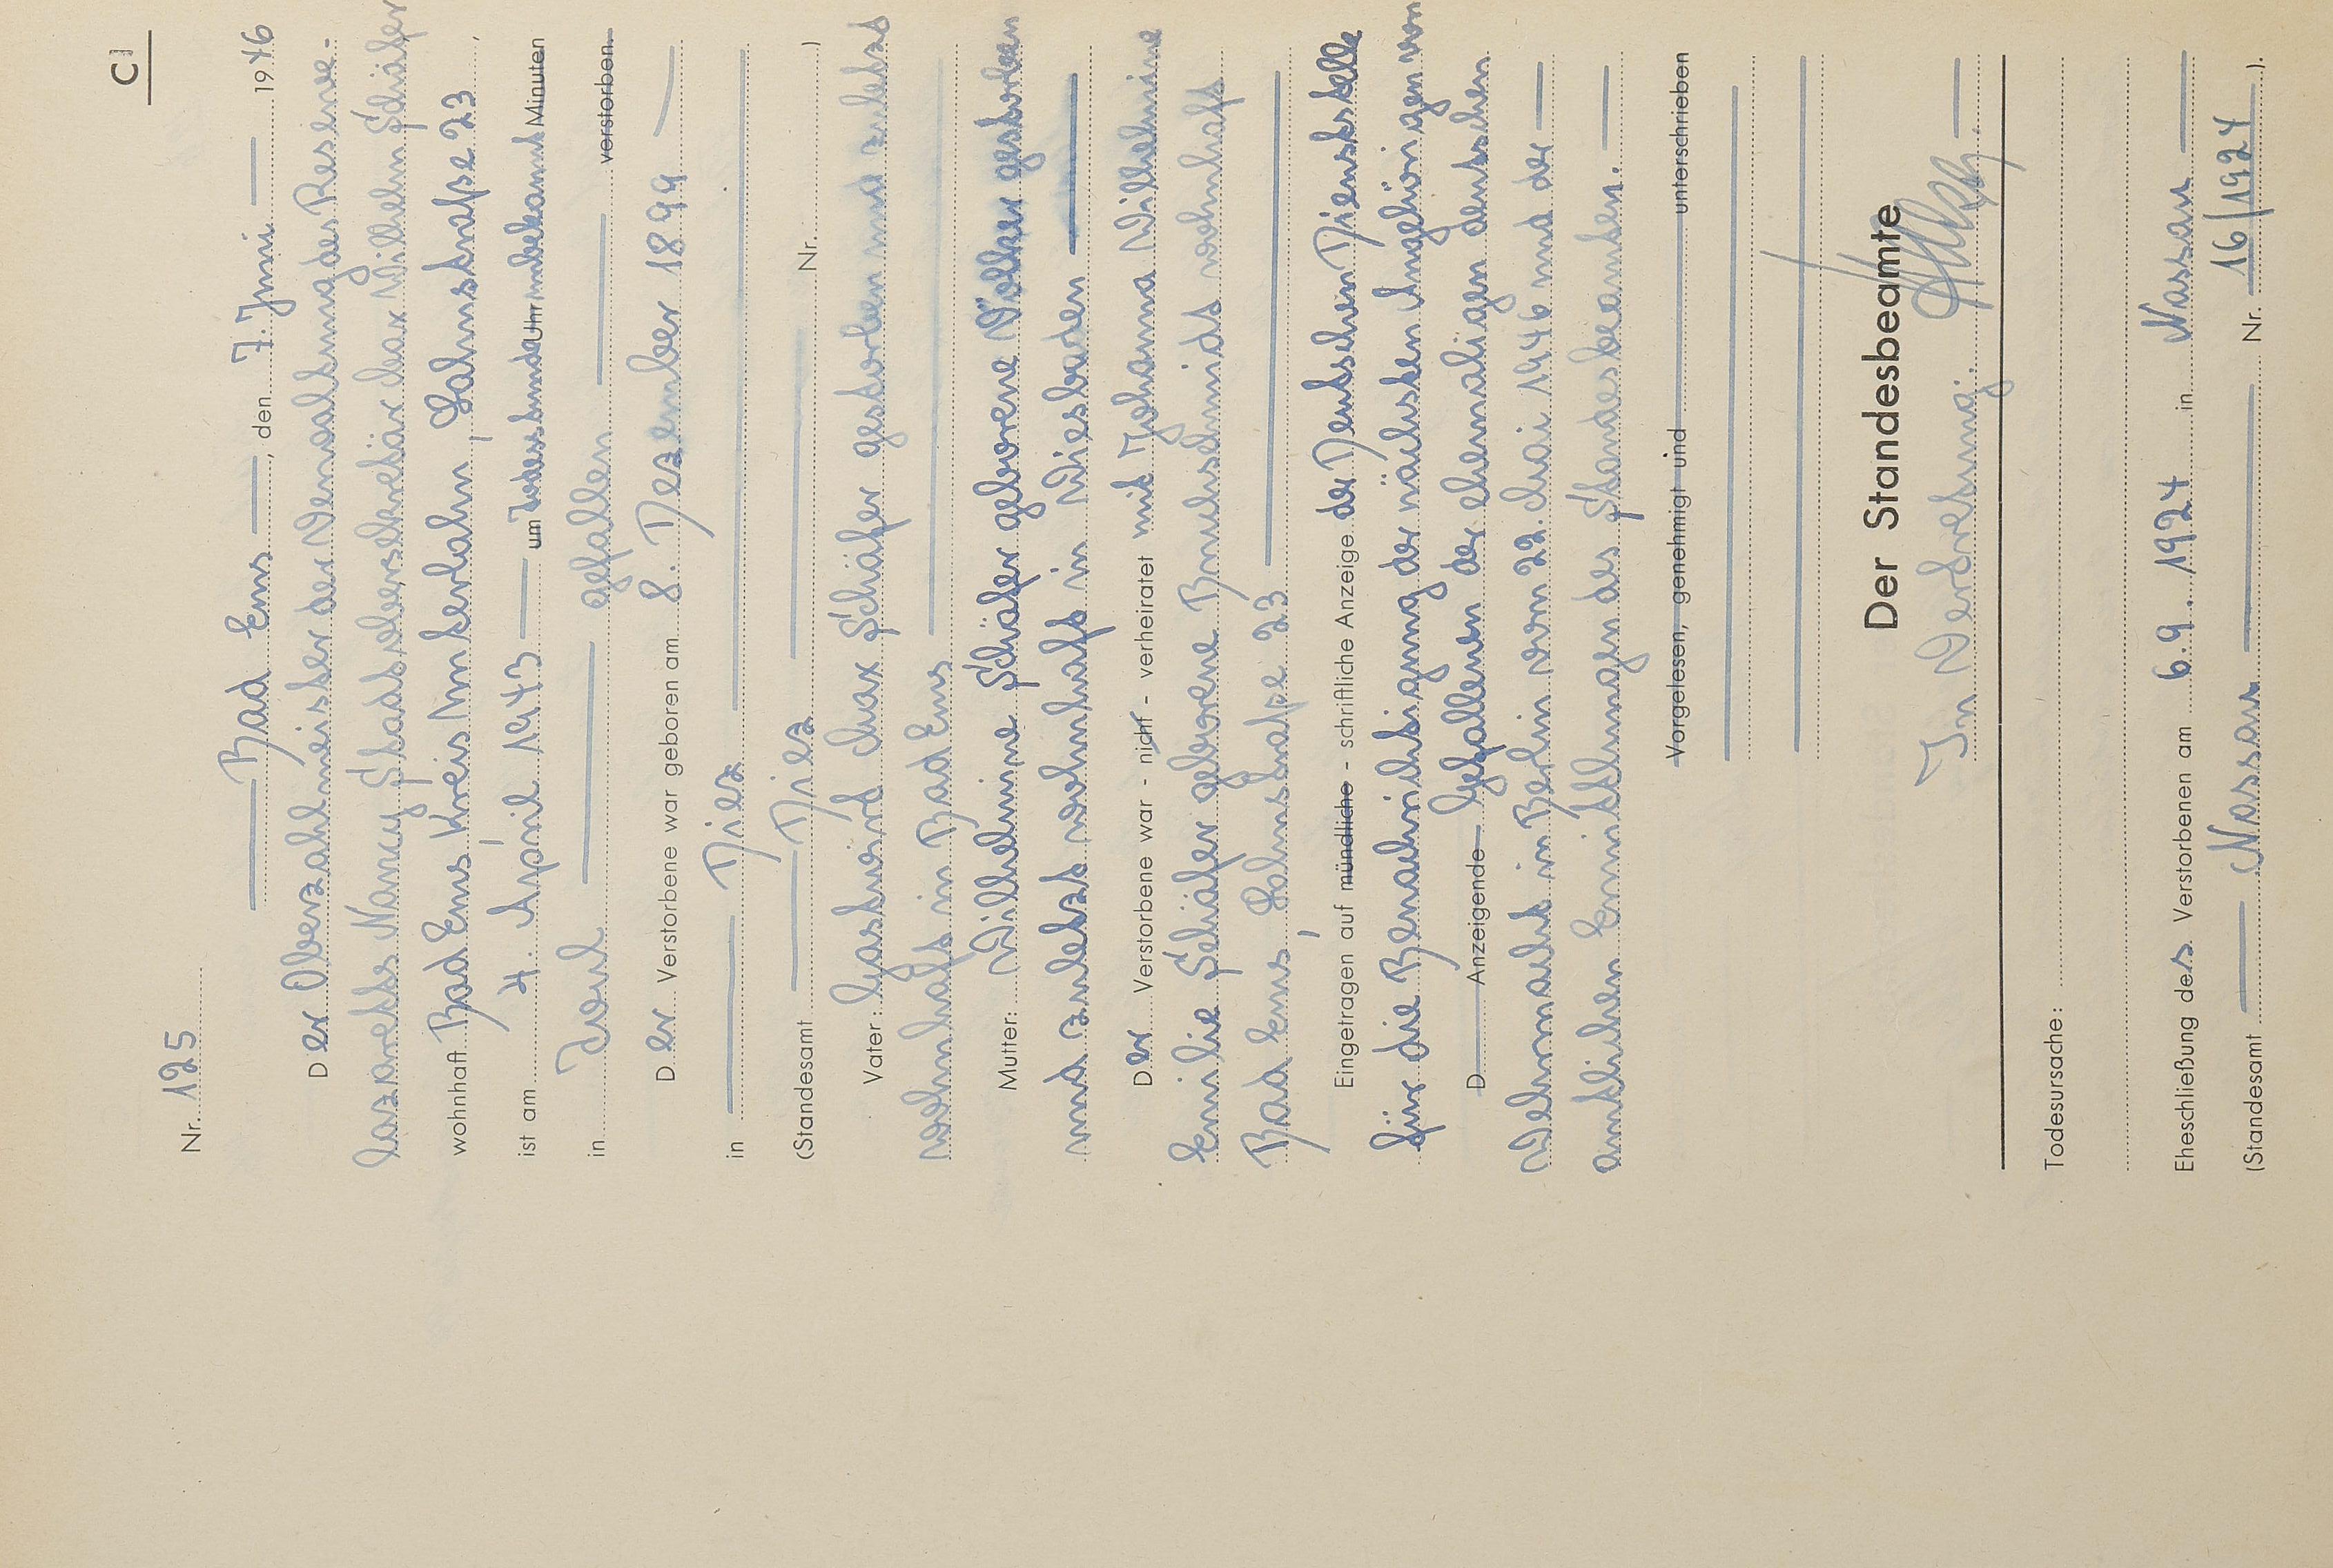 C1
Nr. 125
Bad Ems, den 7. Juni 1946
Der Oberzahlmeister der Verwaltung des Reserve-
lazaretts Nancy Stadtobersekretär Max Wilhelm Schäfer
wohnhaft Bad Ems Kreis Unterlahn, Lahnstraße 23,
ist am 4. April 1943 um Todesstunde Uhr unbekannt Minuten
in Toul gefallen verstorben.
Der Verstorbene war geboren am 8. Dezember 1899
in Diez
(Standesamt Diez Nr. )
Vater: Gastwird Max Schäfer gestorben und zuletzt
wohnhaft in Bad Ems
Mutter: Wilhelmine Schäfer geborene Völker gestorben
und zuletzt wohnhaft in Wiesbaden
Der Verstorbene war - nicht - verheiratet mit Johanna Wilhelmine
Emilie Schäfer geborene Bruchschmidt wohnhaft
Bad Ems, Lahnstraße 23
Eingetragen auf mündliche - schriftliche Anzeige der Deutschen Dienststelle
für die Benachrichtigung der nächsten Angehörigen von
D Anzeigende Gefallenen der ehemaligen deutschen
Wehrmacht in Berlin vom 22. Mai 1946 und der
amtlichen Ermittlungen des Standesbeamten.
Vorgelesen, genehmigt und unterschrieben
Der Standesbeamte
In Vertretung:
Todesursache:
Eheschließung des Verstorbenen am 6.9.1924 in Nassau
(Standesamt Nassau Nr. 16/1924 ).